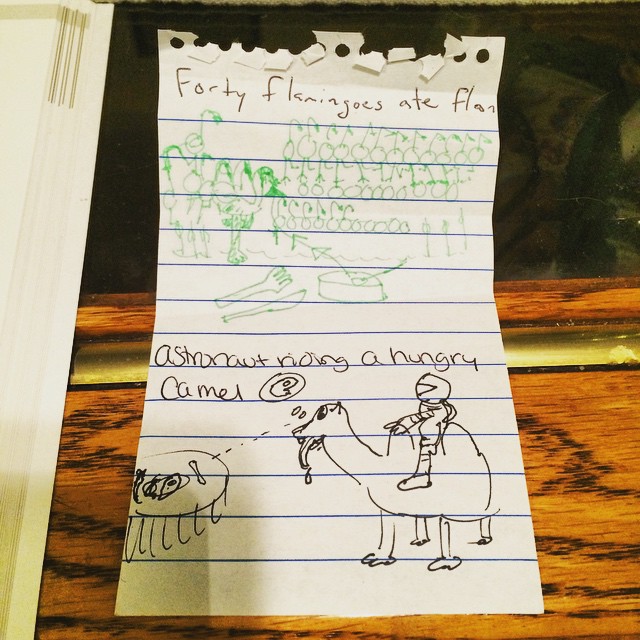 Forty flamingoes ate flan
astronaut riding a hungry
Camel